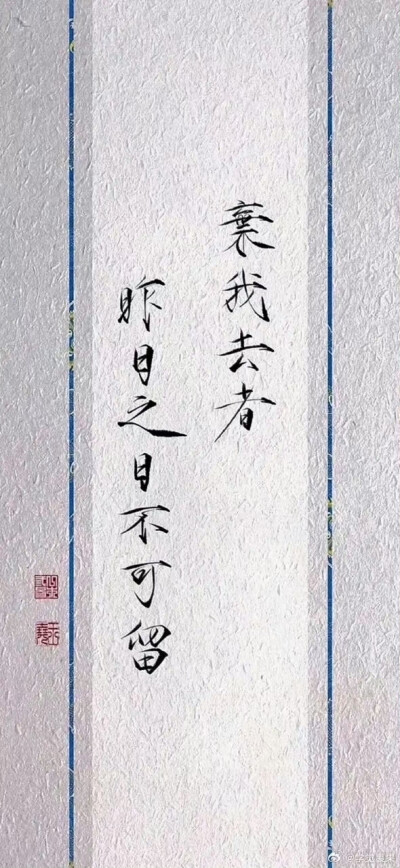 棄我去者
昨日之日不可留